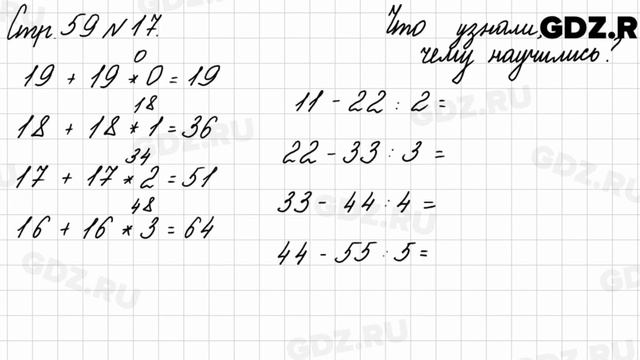 Стр. 59 N 17.
Что узнали,
чему научились?
GDZ.R
0
19 + 19 * 0 = 19
18
18 + 18 * 1 = 36
34
17 + 17 * 2 = 51
48
16 + 16 * 3 = 64
11 - 22 : 2 =
22 - 33 : 3 =
33 - 44 : 4 =
44 - 55 : 5 =
GDZ.RU
GDZ.RU
GDZ.RU
GDZ.RU
GDZ.RU
GDZ.RU